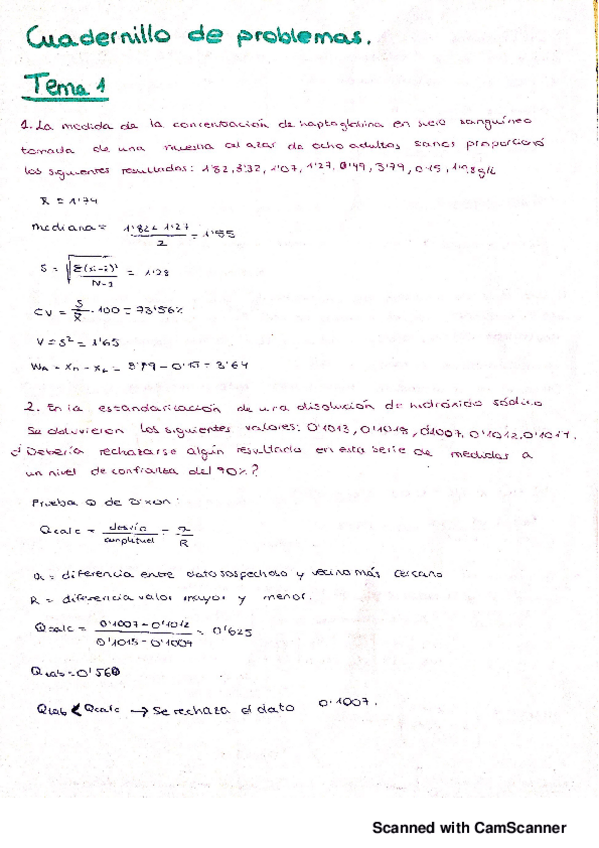 Cuadernillo de problemas.
Tema 1
1. La medida de la concentración de haptoglobina en suero sanguíneo
tomada de una muestra al azar de ocho adultos sanos proporcionó
los siguientes resultados: 1'82, 3'32, 1'07, 1'27, 0'49, 3'79, 0'15, 1'98 g/L
x̄ = 1'74
mediana = 1'82 + 1'27 / 2 = 1'55
S = √ Σ(xi-x̄)² / N-1 = 1'28
CV = S / x̄ · 100 = 73'56%
V = S² = 1'65
3'79 - 0'15 = 3'64
2. En la estandarización de una disolución de hidróxido sódico
se obtuvieron los siguientes valores: 0'1013, 0'1015, 0'1007, 0'1012, 0'1014.
¿Debería rechazarse algún resultado en esta serie de medidas a
un nivel de confianza del 90%?
Prueba Q de Dixon:
Qcalc = desvío / amplitud = a / R
a = diferencia entre dato sospechoso y vecino más cercano
R = diferencia valor mayor y menor.
Qcalc = 0'1007 - 0'1012 / 0'1015 - 0'1007 = 0'625
Qtab = 0'560
Qtab < Qcalc → Se rechaza el dato 0'1007.
Scanned with CamScanner